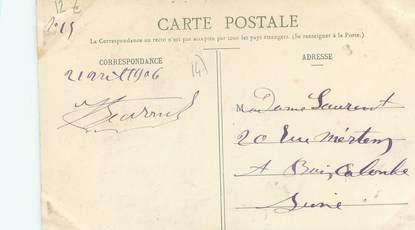 12 €
N° 15
CARTE POSTALE
La Correspondance au recto n'est pas acceptée par tous les pays étrangers. (Se renseigner à la Poste.)
CORRESPONDANCE
ADRESSE
21 avril 1906
Madame Laurent
20 Rue Mertens
A Bois Colombe
Seine